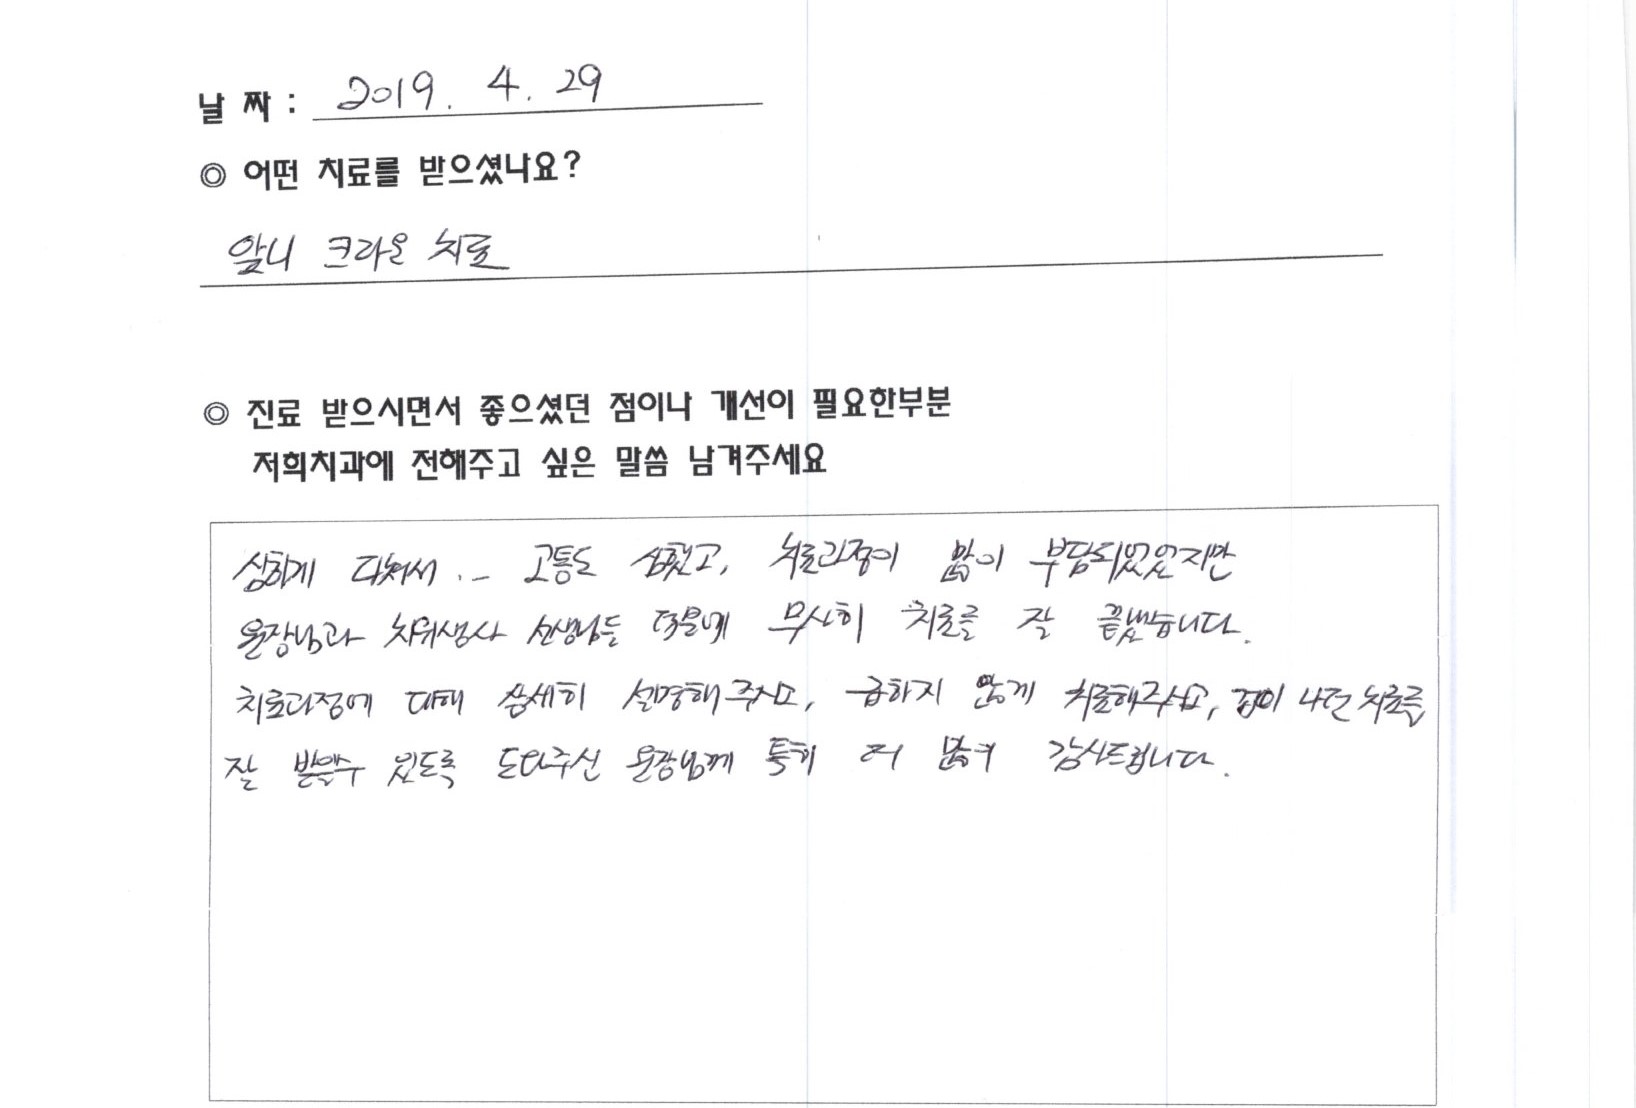 날 짜 : 2019. 4. 29
◎ 어떤 치료를 받으셨나요?
앞니 크라운 치료
◎ 진료 받으시면서 좋으셨던 점이나 개선이 필요한부분
저희치과에 전해주고 싶은 말씀 남겨주세요
심하게 다쳐서 .. 고통도 심했고, 치료과정이 많이 부담되었었지만
원장님과 치위생사 선생님들 덕분에 무사히 치료를 잘 끝냈습니다.
치료과정에 대해 상세히 설명해주시고, 급하지 않게 치료해주시고, 겁이 나던 치료를
잘 받을수 있도록 도와주신 원장님께 특히 더 많이 감사드립니다.